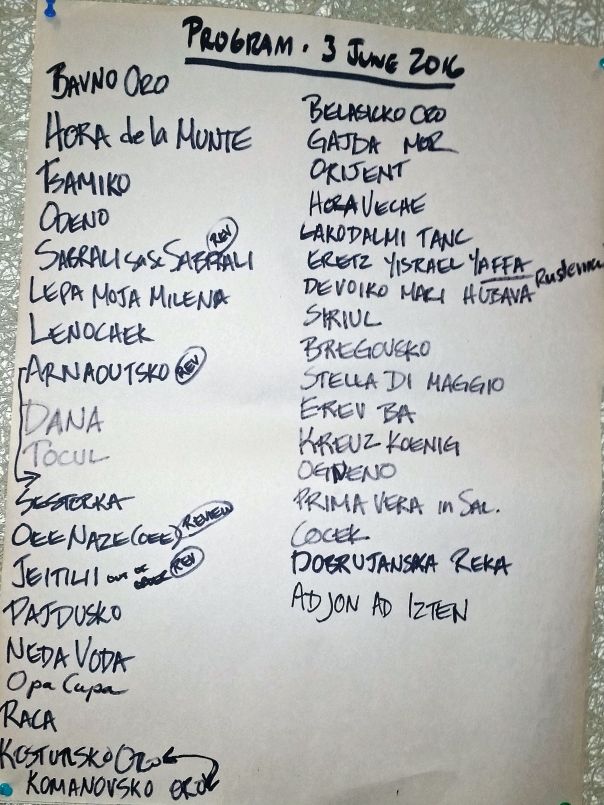 PROGRAM · 3 JUNE 2016
BAVNO ORO
HORA de la MUNTE
TSAMIKO
ODENO
SABRALI SA SE SABRALI REV
LEPA MOJA MILENA
LENOCHEK
ARNAOUTSKO REV
DANA
TOCUL
SESTORKA
OEE NAZE (OEE) REVIEW
JEITILII OUT OF ORDER REV
PAJDUSKO
NEDA VODA
Opa Cupa
RACA
KOSTURSKO ORO
KOMANOVSKO ORO
BELASICKO ORO
GAJDA
ORIJENT
HORA VECHE
LAKODALMI TANC
ERETZ YISRAEL YAFFA
DEVOIKO MARI HUBAVA
SIRIUL
BREGOVSKO
STELLA DI MAGGIO
EREV BA
KREUZ KOENIG
OGNENO
PRIMAVERA in SAL.
COCEK
DOBRUJANSKA REKA
AD JON AD IZTEN